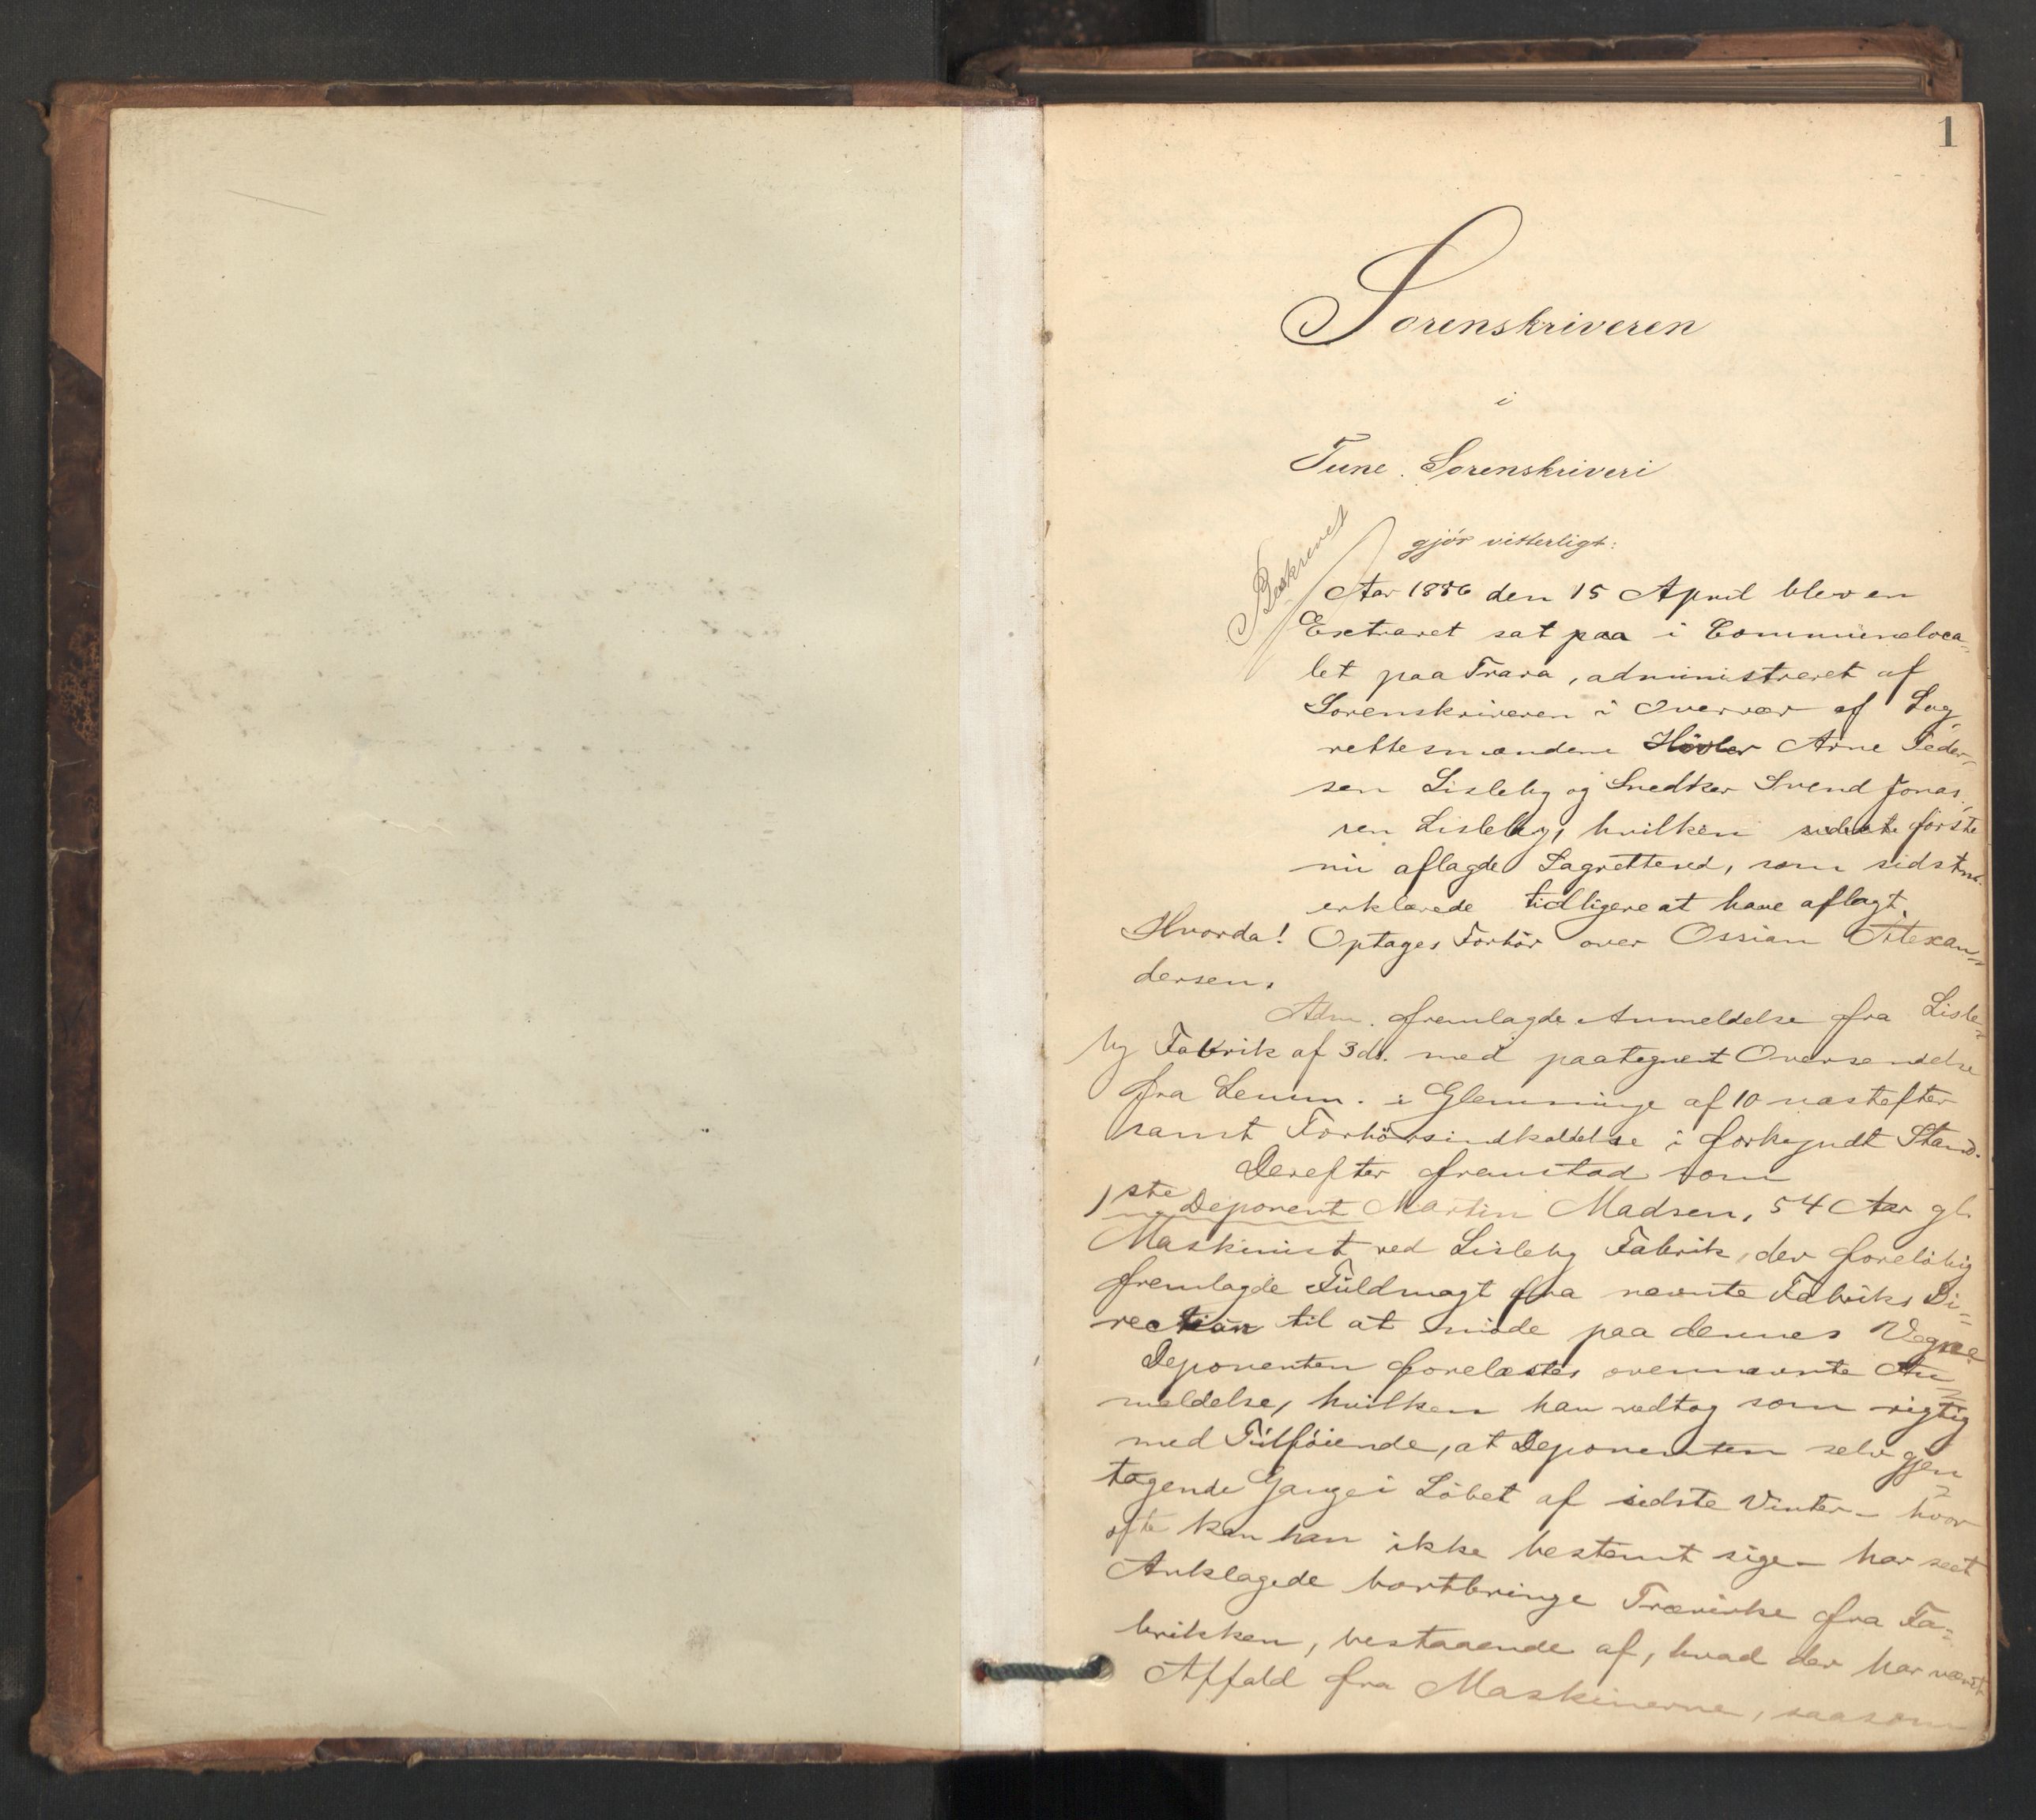 1
Sorenskriveren
i
Tune Sorenskriveri
gjör vitterligt:
Beskrevet
Aar 1886 den 15 April blev en
Extraret sat paa i Communeloca-
let paa Trara, administreret af
Sorenskriveren i Overvær af Lag-
rettesmændene Hövler Arne Peder-
sen Lisleby og Snedker Svend Jonas-
sen Lisleby, hvilken første
nu aflagde Lagretteed, som sidstne.
erklærede tidligere at have aflagt.
Hvorda! Optages Forhör over Ossian Alexan-
dersen.
Adm. fremlagde Anmeldelse fra Lisle-
by Fabrik af 3 ds. med paategnet Oversendelse
fra Lensm. i Glemminge af 10 næstefter
samt Forhörsindkaldelse i forkyndt Stand.
Derefter fremstod som
1ste Deponent Martin Madsen, 54 Aar gl.
Maskinist ved Lisleby Fabrik, der forelöbig
fremlagde Fuldmagt fra nævnte Fabriks Di-
rection til at möde paa dennes Vegne
Deponenten forelæstes ovennævnte An-
meldelse, hvilken han vedtog som rigtig
med Tilföiende, at Deponenten selv gjen-
tagende Gange i Löbet af sidste Vinter - hvor
ofte kan han ikke bestemt sige - har seet
Anklagede bortbringe Trævirke fra Fa-
brikken, bestaaende af, hvad der har været
Affald fra Maskinerne, saasom